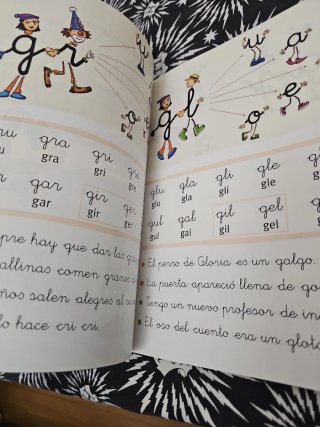 g r u
a
gra gri gre
gra gri gre
gar gir ger
gar gir ger
hay que dar las
comen granos
salen alegres al
hace cri cri.
g l u a
o e
glu gla gli gle
glu gla gli gle
gul gal gil gel
gul gal gil gel
El perro de Gloria es un galgo.
La puerta apareció llena de
Tengo un nuevo profesor de
El oso del cuento era un